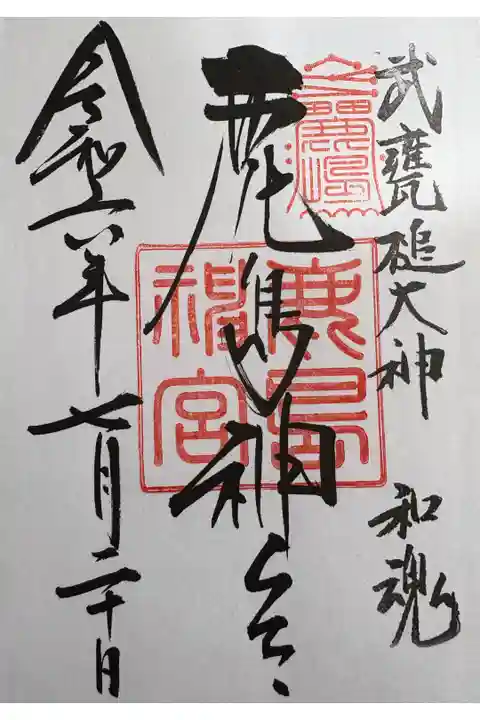 武甕槌大神 和魂
鹿島神宮
鹿島神宮
令和六年七月二十日